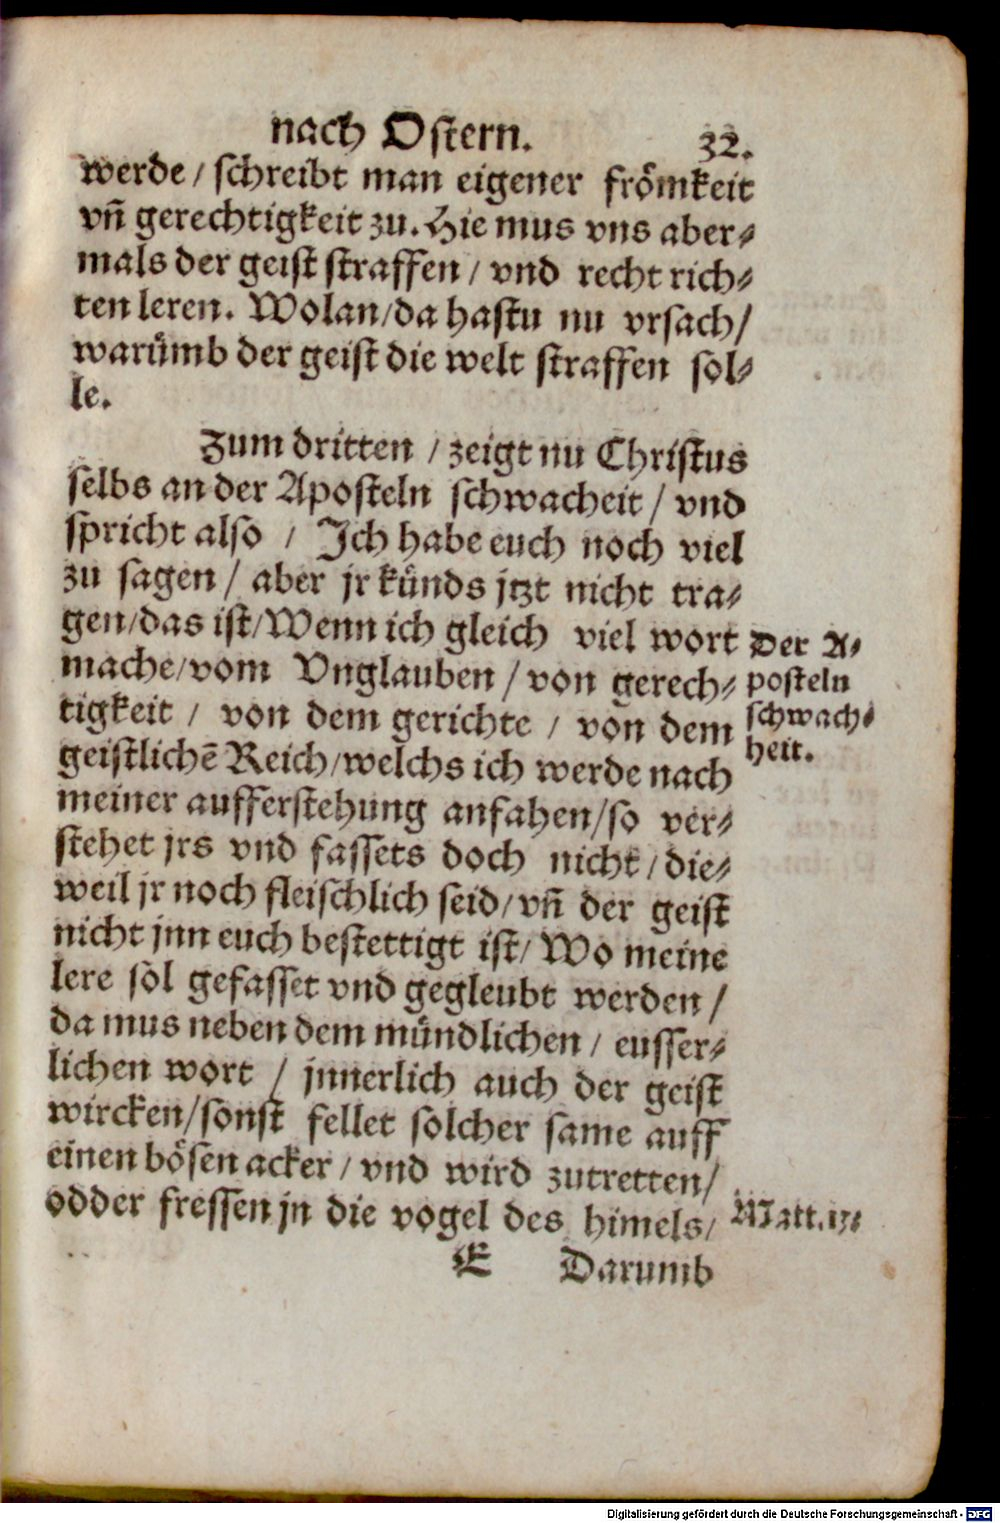 nach Ostern. 32.
werde / schreibt man eigener frömkeit
vn̄ gerechtigkeit zu. Hie mus vns aber⸗
mals der geist straffen / vnd recht rich⸗
ten leren. Wolan/da hastu nu vrsach/
warümb der geist die welt straffen sol⸗
le.
Zum dritten / zeigt nu Christus
selbs an der Aposteln schwacheit / vnd
spricht also / Ich habe euch noch viel
zu sagen / aber jr künds jtzt nicht tra⸗
gen/das ist/Wenn ich gleich viel wort
mache/vom Vnglauben / von gerech⸗
tigkeit / von dem gerichte / von dem
geistlichē Reich/welchs ich werde nach
meiner aufferstehung anfahen/so ver⸗
stehet jrs vnd fassets doch nicht / die⸗
weil jr noch fleischlich seid/vn̄ der geist
nicht jnn euch bestettigt ist/ Wo meine
lere sol gefasset vnd gegleubt werden /
da mus neben dem mündlichen / eusser⸗
lichen wort / jnnerlich auch der geist
wircken/sonst fellet solcher same auff
einen bösen acker / vnd wird zutretten/
odder fressen jn die vogel des himels/
Der A⸗
posteln
schwach⸗
heit.
Matt.13.
E Darumb
Digitalisierung gefördert durch die Deutsche Forschungsgemeinschaft - DFG